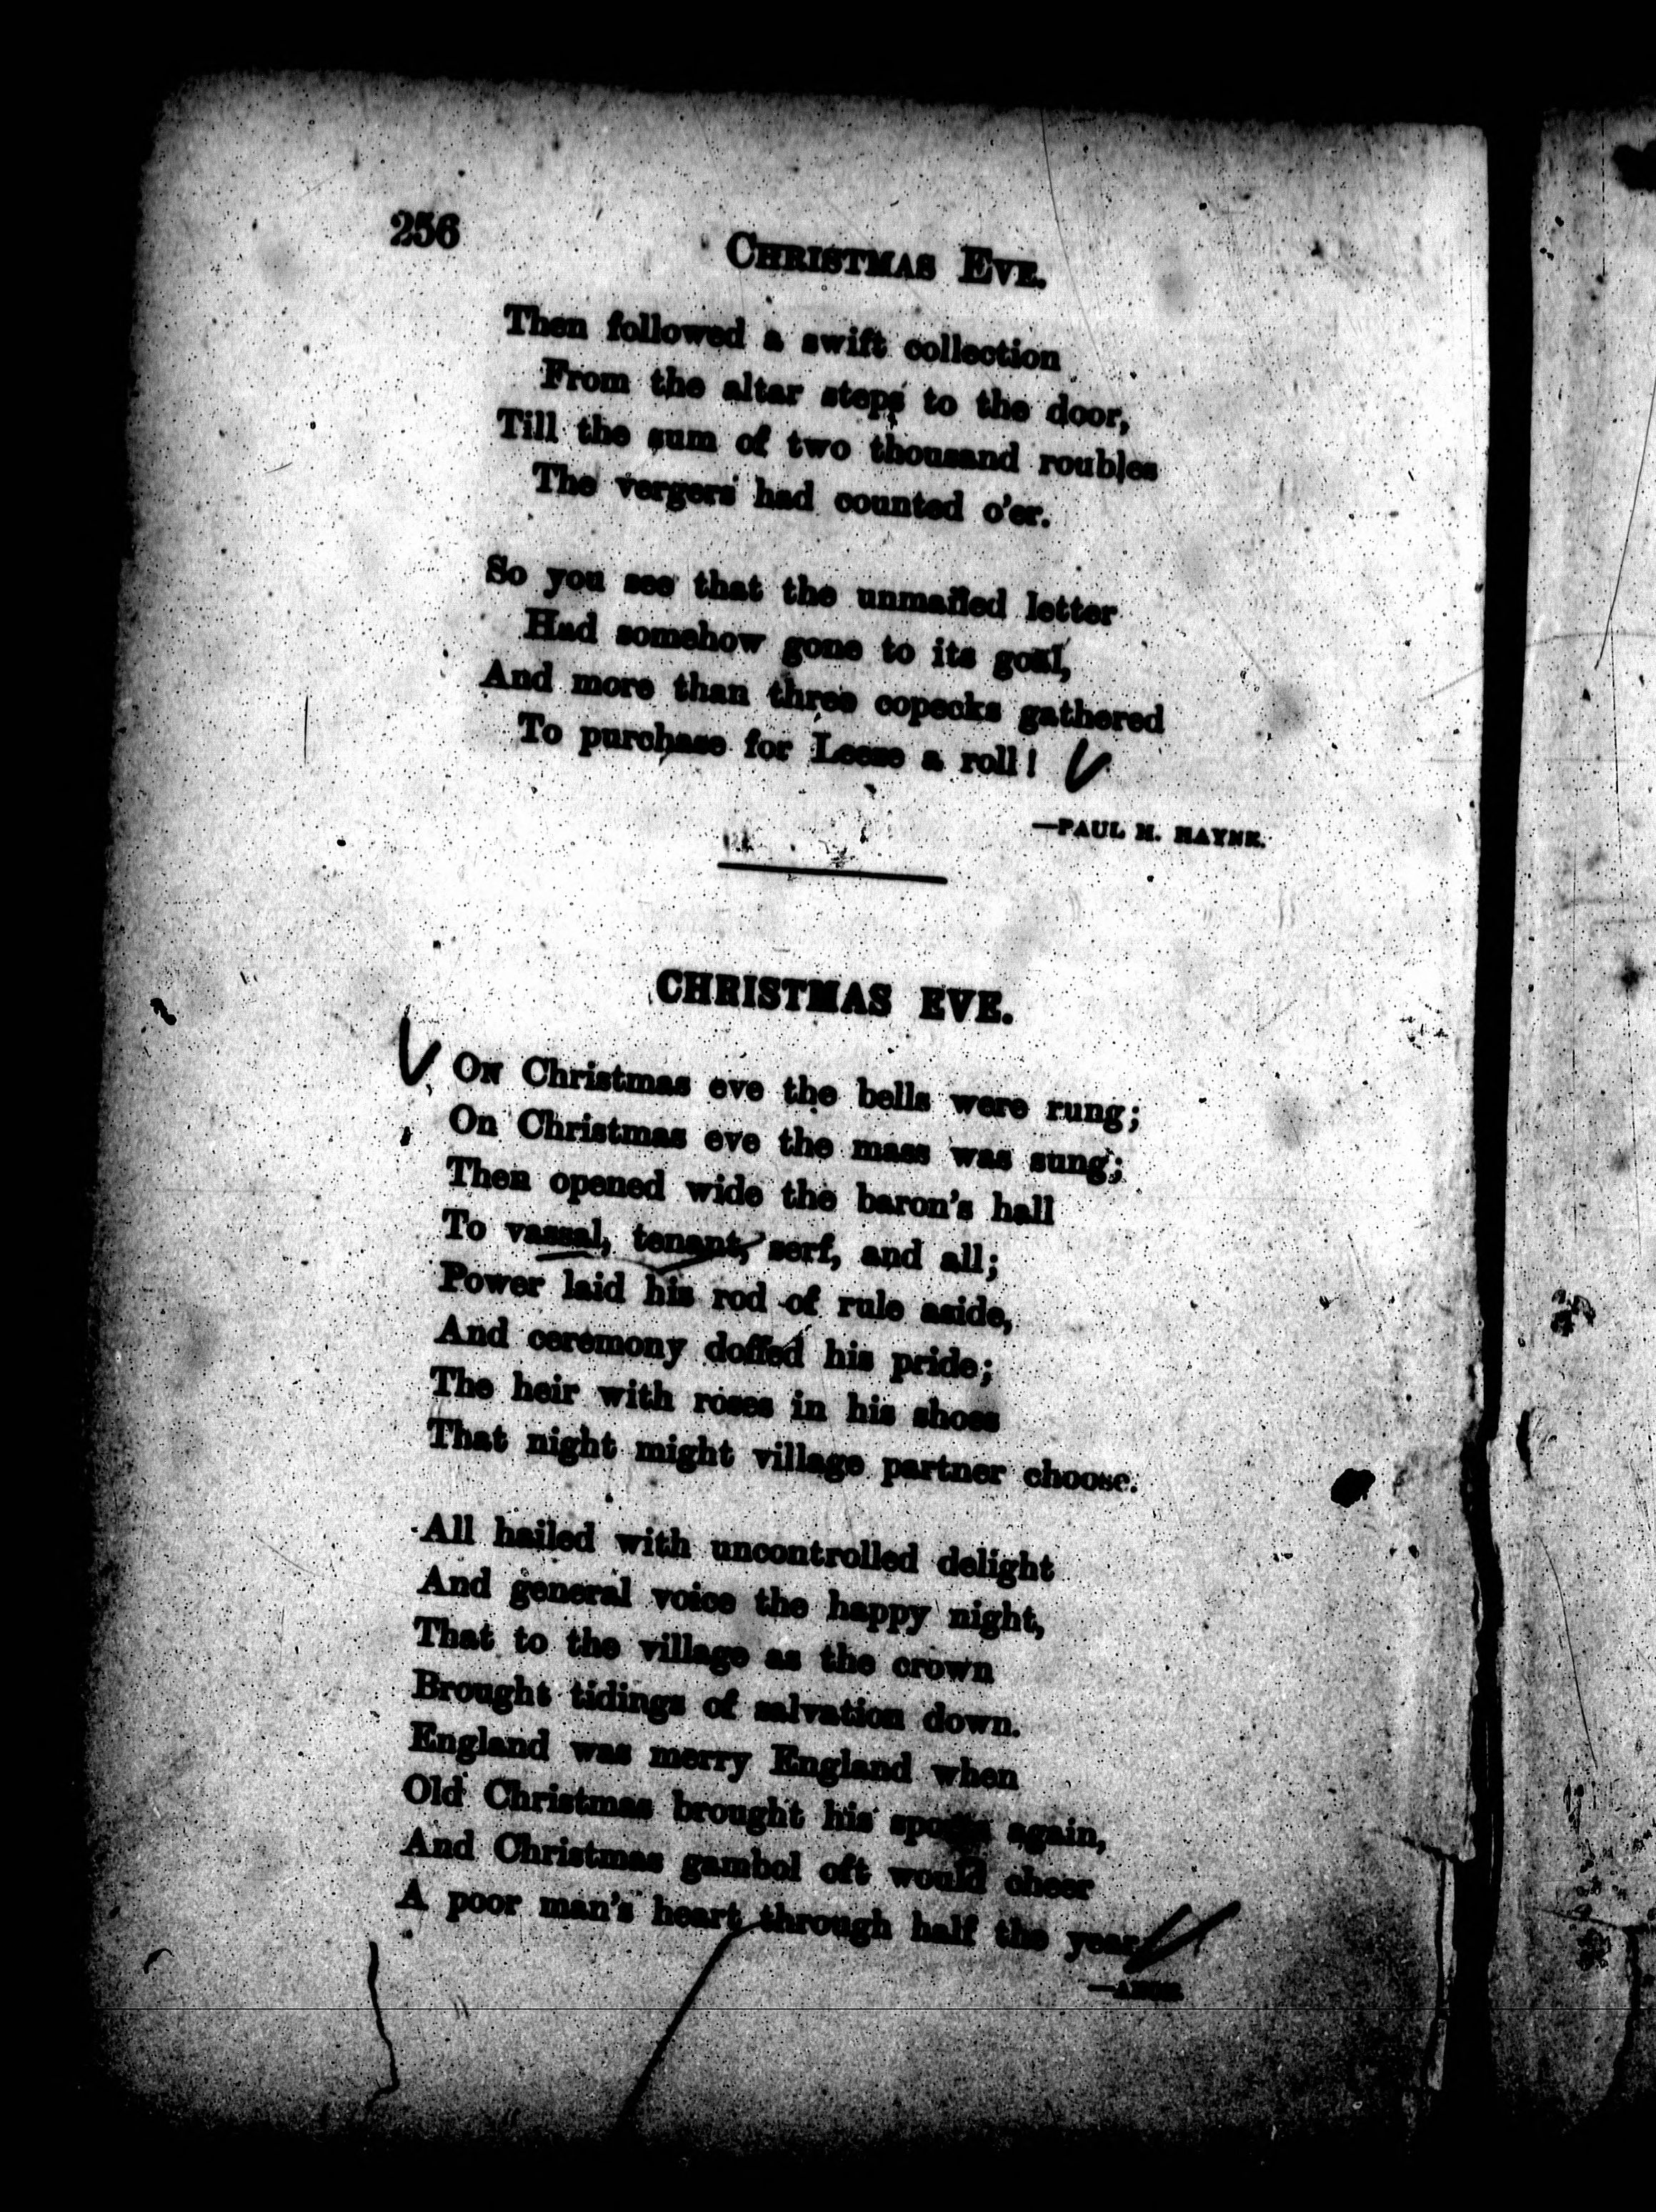 256
CHRISTMAS EVE.
Then followed a swift collection
From the altar steps to the door,
Till the sum of two thousand roubles
The vergers had counted o'er.
So you see that the unmailed letter
Had somehow gone to its goal,
And more than three copecks gathered
To purchase for Leeze a roll!
—PAUL H. HAYNE.
CHRISTMAS EVE.
ON Christmas eve the bells were rung;
On Christmas eve the mass was sung;
Then opened wide the baron's hall
To vassal, tenant, serf, and all;
Power laid his rod of rule aside,
And ceremony doffed his pride;
The heir with roses in his shoes
That night might village partner choose.
All hailed with uncontrolled delight
And general voice the happy night,
That to the village as the crown
Brought tidings of salvation down.
England was merry England when
Old Christmas brought his sports again,
And Christmas gambol oft would cheer
A poor man's heart through half the year.
—ANON.